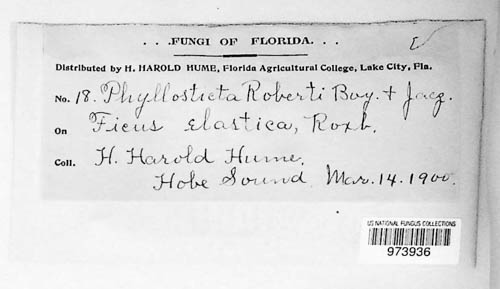 . . .FUNGI OF FLORIDA. . .
Distributed by H. HAROLD HUME, Florida Agricultural College, Lake City, Fla.
No. 18. Phyllosticta Roberti Boy. + Jacz.
On Ficus elastica, Roxb.
Coll. H. Harold Hume.
Hobe Sound. Mar. 14. 1900.
US NATIONAL FUNGUS COLLECTIONS
973936